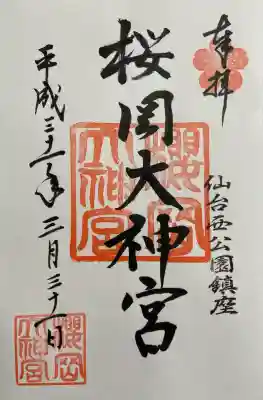 奉拝
仙台西公園鎮座
桜岡大神宮
櫻岡大神宮
平成三十一年三月三十一日
櫻岡大神宮